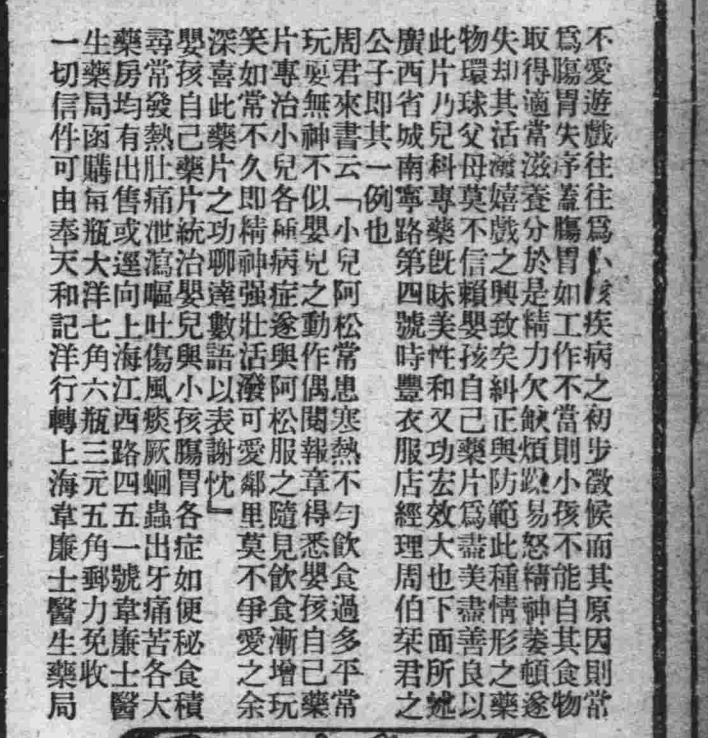 不愛遊戲往往爲小孩疾病之初步徵候而其原因則常
爲腸胃失序蓋腸胃如工作不當則小孩不能自其食物
取得適當滋養分於是精力欠缺煩躁易怒精神萎頓遂
失却其活潑嬉戲之興致矣糾正與防範此種情形之藥
物環球父母莫不信賴嬰孩自己藥片爲盡美盡善良以
此片乃兒科專藥旣味美性和又功宏效大也下面所述
廣西省城南寧路第四號時豐衣服店經理周伯琹君之
公子卽其一例也
周君來書云「小兒阿松常患寒熱不勻飲食過多平常
玩耍無神不似嬰兒之動作偶閱報章得悉嬰孩自己藥
片專治小兒各種病症遂與阿松服之隨見飲食漸增玩
笑如常不久卽精神强壯活潑可愛鄰里莫不爭愛之余
深喜此藥片之功聊達數語以表謝忱」
嬰孩自己藥片統治嬰兒與小孩腸胃各症如便秘食積
尋常發熱肚痛泄瀉嘔吐傷風痰厥蛔蟲出牙痛苦各大
藥房均有出售或逕向上海江西路四五一號韋廉士醫
生藥局函購每瓶大洋七角六瓶三元五角郵力免收
一切信件可由奉天和記洋行轉上海韋廉士醫生藥局